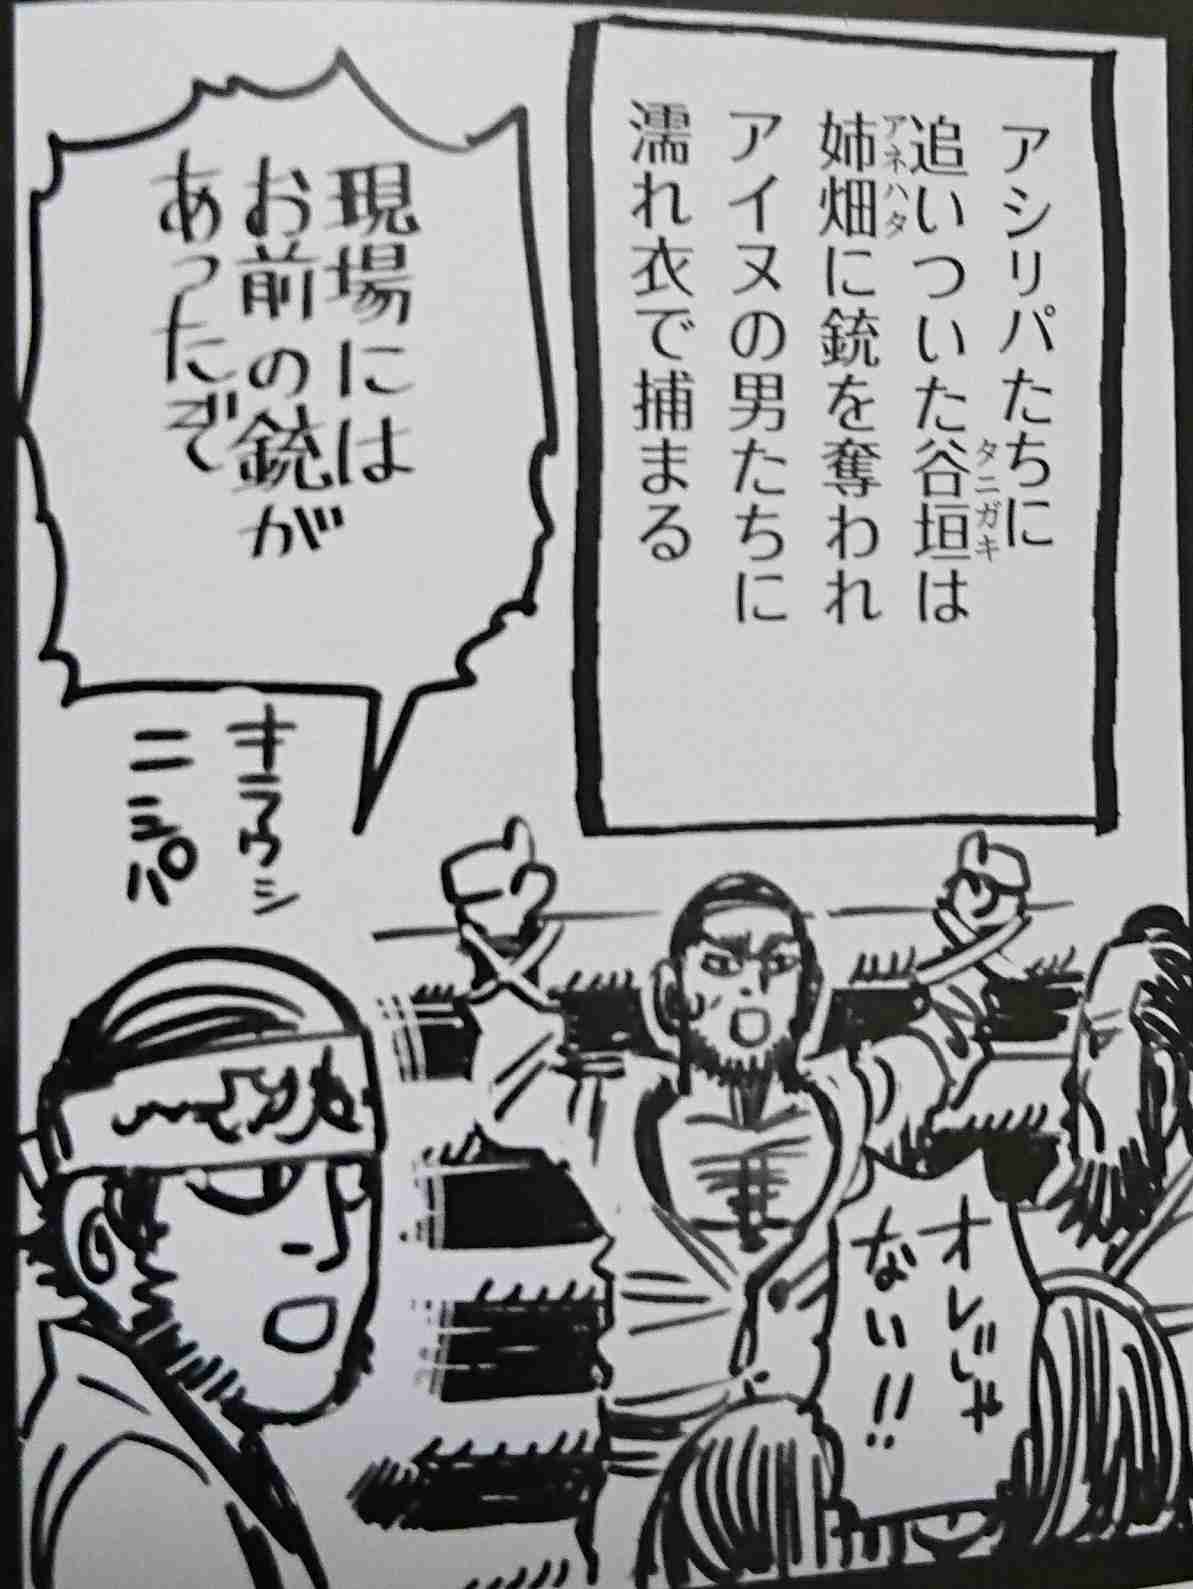 アシリパたちに
追いついた谷垣は
タニガキ
姉畑に銃を奪われ
アネハタ
アイヌの男たちに
濡れ衣で捕まる
現場には
お前の銃が
あったぞ
キラウシ
ニㇱパ
オレじゃ
ない!!